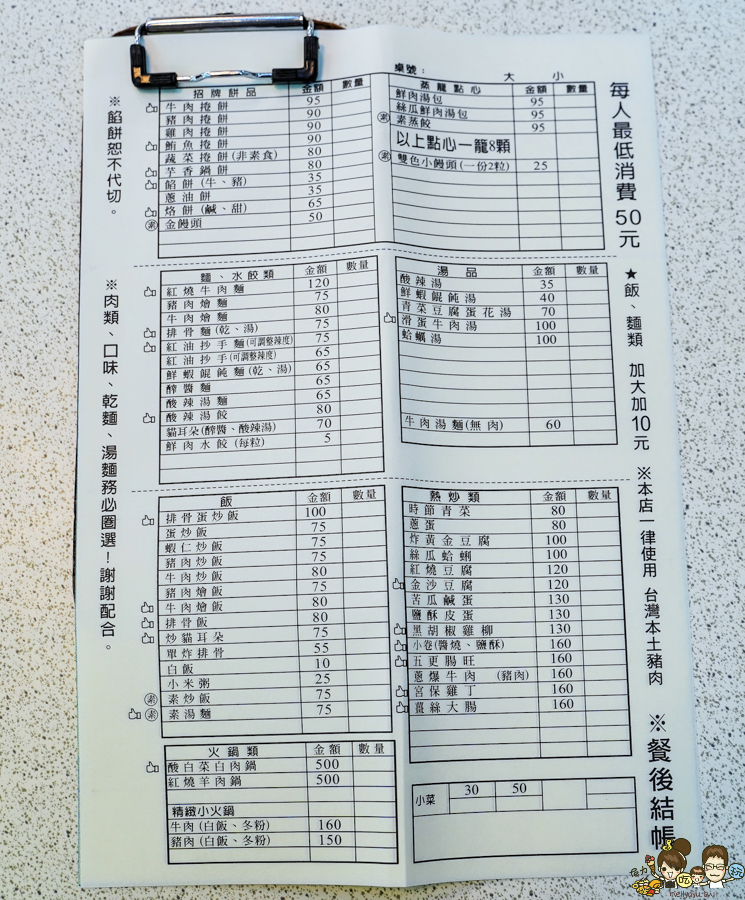 桌號：
大 小
招牌餅品 金額 數量
牛肉捲餅 95
豬肉捲餅 90
雞肉捲餅 90
鮪魚捲餅 90
蔬菜捲餅(非素食) 80
芋香鍋餅 80
餡餅(牛、豬) 35
蔥油餅 35
烙餅(鹹、甜) 65
素 金饅頭 50
蒸籠點心 金額 數量
鮮肉湯包 95
絲瓜鮮肉湯包 95
素 素蒸餃 95
以上點心一籠8顆
素 雙色小饅頭(一份2粒) 25
麵、水餃類 金額 數量
紅燒牛肉麵 120
豬肉燴麵 75
牛肉燴麵 80
排骨麵(乾、湯) 75
紅油抄手麵(可調整辣度) 75
紅油抄手(可調整辣度) 65
鮮蝦餛飩麵(乾、湯) 65
醡醬麵 65
酸辣湯麵 65
酸辣湯餃 80
貓耳朵(醡醬、酸辣湯) 70
鮮肉水餃(每粒) 5
湯品 金額 數量
酸辣湯 35
鮮蝦餛飩湯 40
青菜豆腐蛋花湯 70
滑蛋牛肉湯 100
蛤蠣湯 100
牛肉湯麵(無肉) 60
飯 金額 數量
排骨蛋炒飯 100
蛋炒飯 75
蝦仁炒飯 75
豬肉炒飯 75
牛肉炒飯 80
豬肉燴飯 75
牛肉燴飯 80
排骨飯 80
炒貓耳朵 75
單炸排骨 55
白飯 10
小米粥 25
素 素炒飯 75
素 素湯麵 75
熱炒類 金額 數量
時節青菜 80
蔥蛋 80
炸黃金豆腐 100
絲瓜蛤蜊 100
紅燒豆腐 120
金沙豆腐 120
苦瓜鹹蛋 130
鹽酥皮蛋 130
黑胡椒雞柳 130
小卷(醬燒、鹽酥) 160
五更腸旺 160
蔥爆牛肉 (豬肉) 160
宮保雞丁 160
薑絲大腸 160
火鍋類 金額 數量
酸白菜白肉鍋 500
紅燒羊肉鍋 500
精緻小火鍋
牛肉(白飯、冬粉) 160
豬肉(白飯、冬粉) 150
小菜 30 50
※餡餅恕不代切。
※肉類、口味、乾麵、湯麵務必圈選！謝謝配合。
每人最低消費50元
★飯、麵類 加大加10元
※本店一律使用 台灣本土豬肉
※餐後結帳